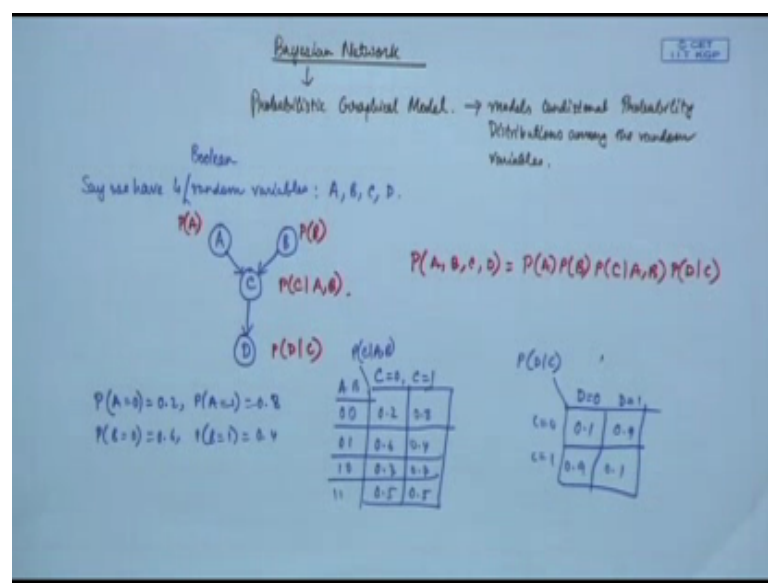 Bayesian Network
© CET
I.I.T. KGP
↓
Probabilistic Graphical Model. → models Conditional Probability
Distributions among the random
variables.
Boolean
Say we have 4 random variables : A, B, C, D.
P(A) A B P(B)
C P(C|A,B).
P(A, B, C, D) = P(A) P(B) P(C|A,B) P(D|C)
D P(D|C)
P(A=0) = 0.2, P(A=1) = 0.8
P(B=0) = 0.6, P(B=1) = 0.4
P(C|A,B)
A B C=0, C=1
00 0.2 0.8
01 0.6 0.4
10
11 0.5 0.5
P(D|C)
D=0 D=1
C=0 0.1 0.9
C=1 0.9 0.1